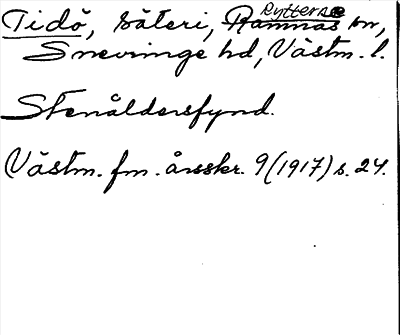 Tidö, säteri, Ramnäs Rytterne sn,
Snevringe hd, Västm. l.
Stenåldersfynd.
Västm. fm. årsskr. 9 (1917) s. 24.